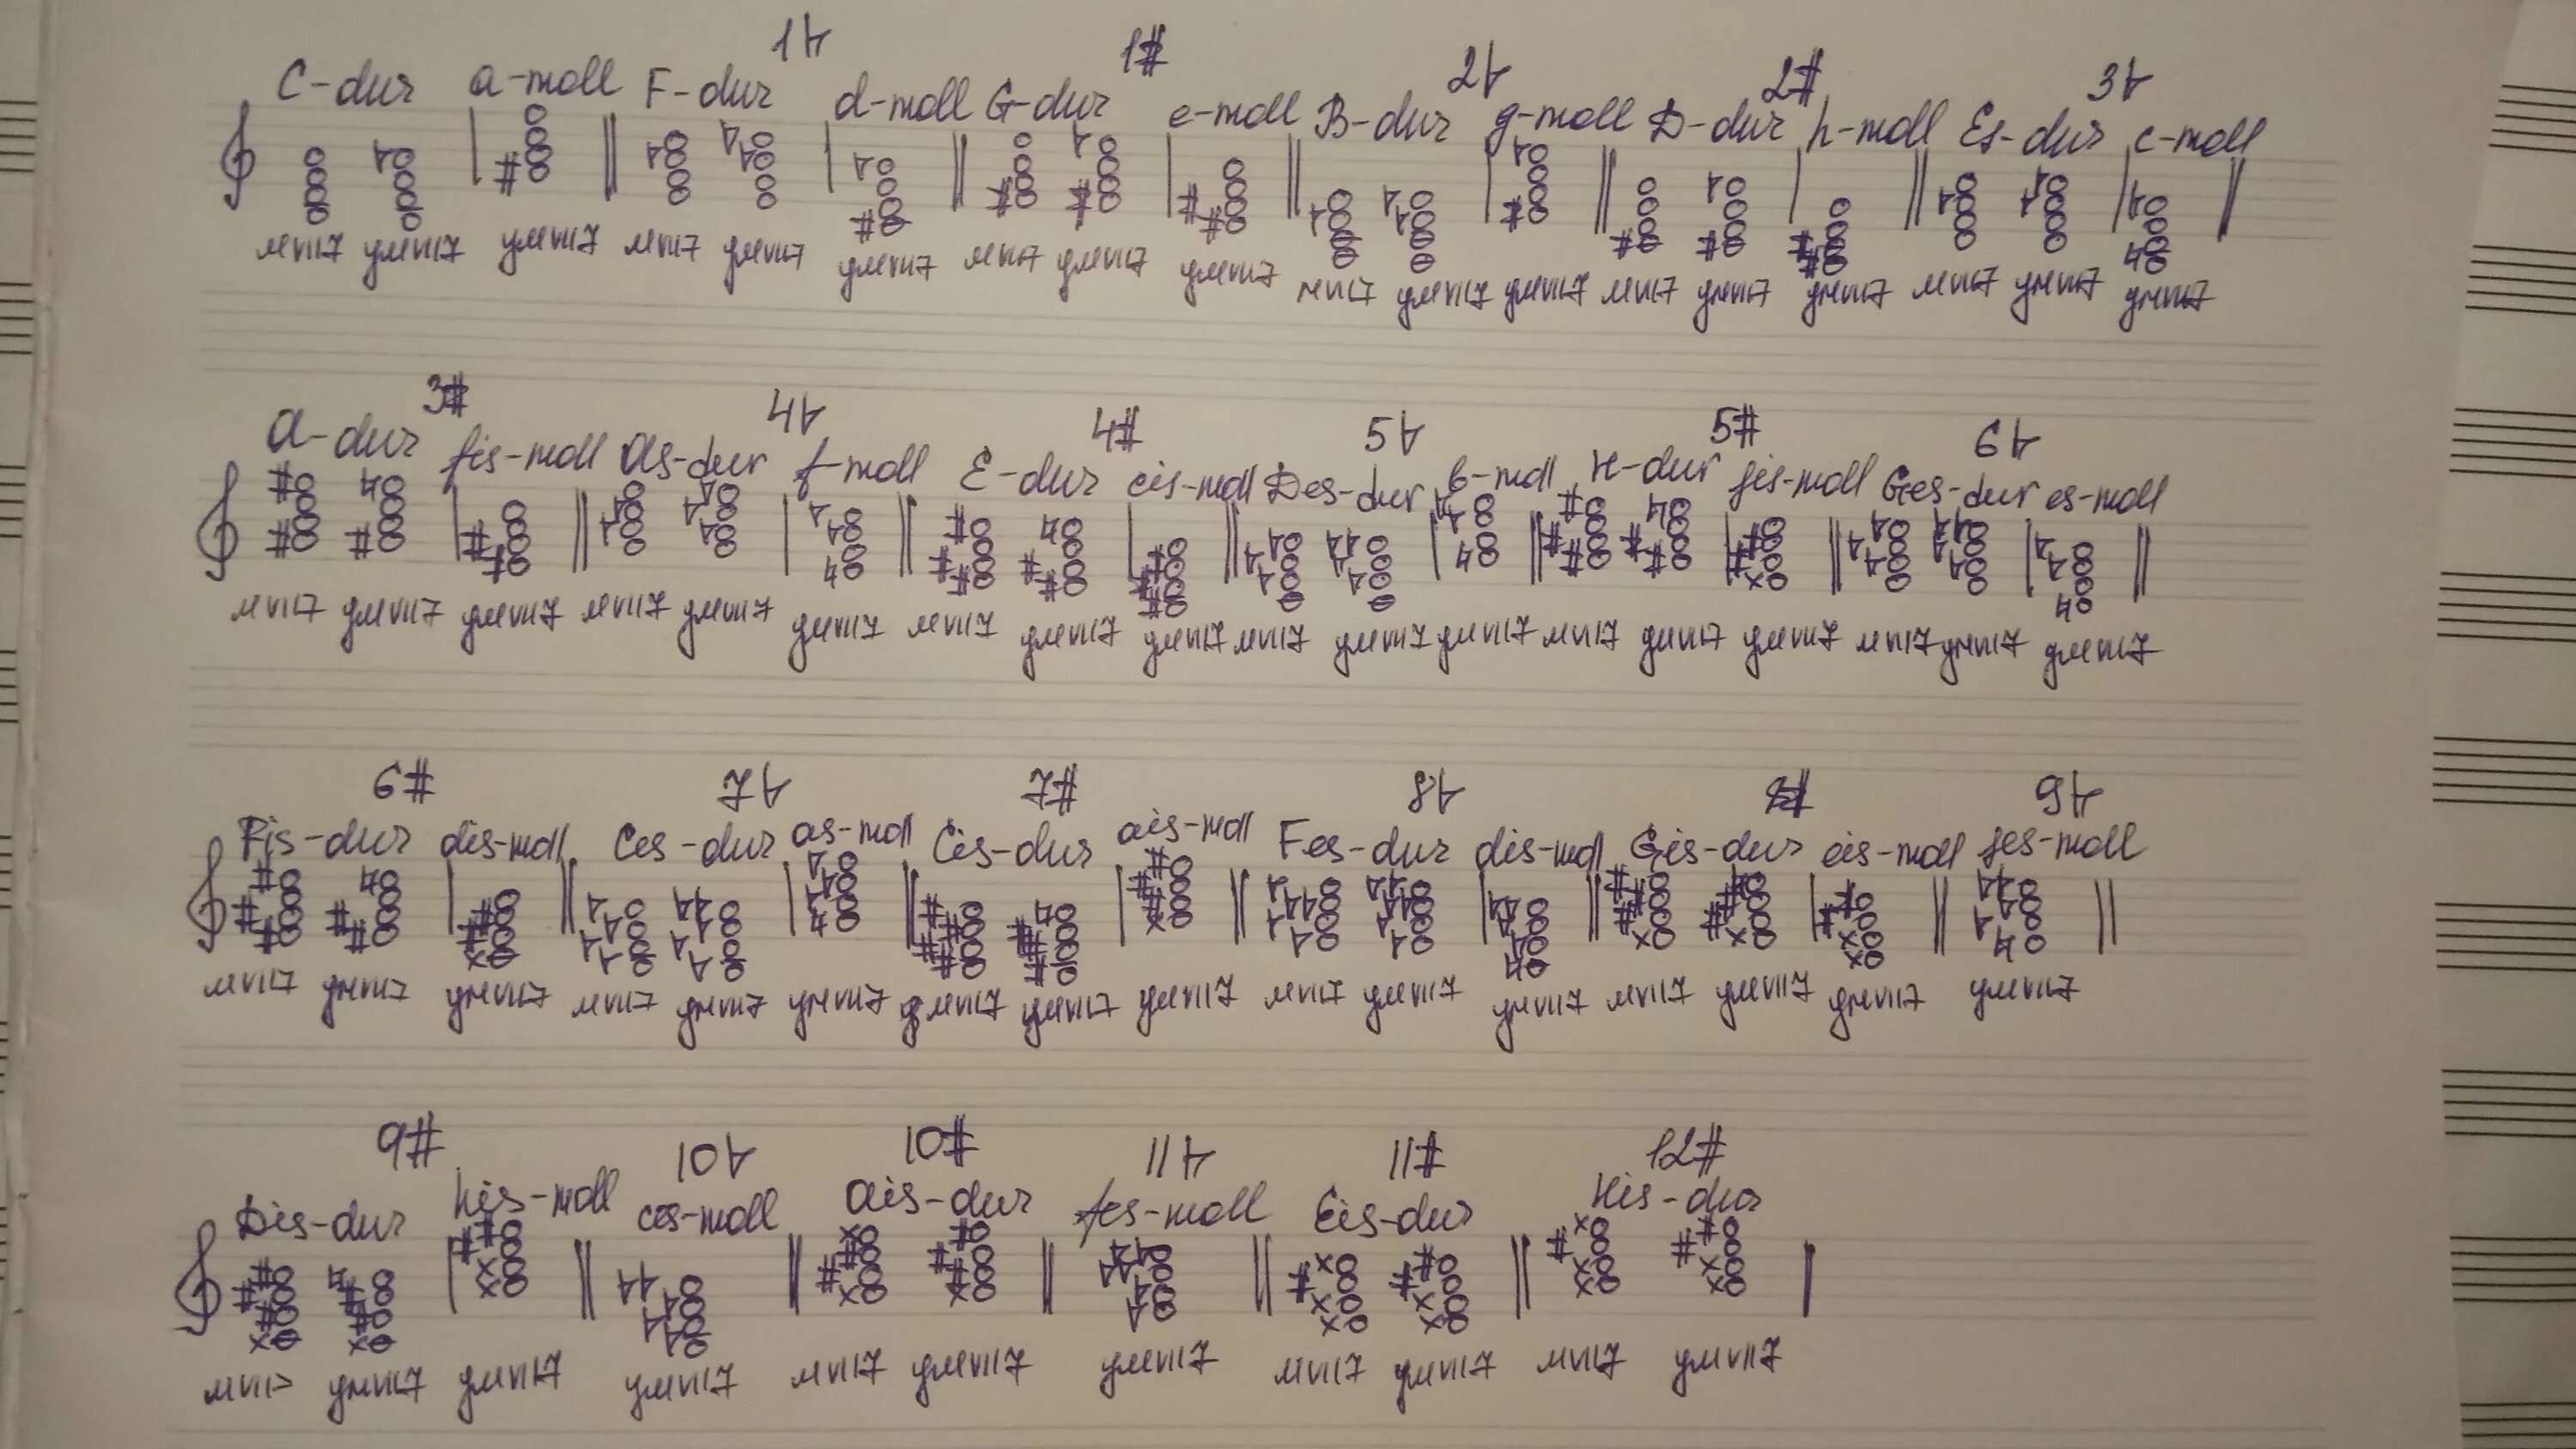 1♭ 1# 2♭ 2# 3♭
C-dur a-moll F-dur d-moll G-dur e-moll B-dur g-moll D-dur h-moll Es-dur c-moll
мVII7 умVII7 умVII7 мVII7 умVII7 умVII7 мVII7 умVII7 умVII7 мVII7 умVII7 умVII7 мVII7 умVII7 умVII7 мVII7 умVII7 умVII7
3# 4♭ 4# 5♭ 5# 6♭
A-dur fis-moll As-dur f-moll E-dur cis-moll Des-dur b-moll H-dur gis-moll Ges-dur es-moll
мVII7 умVII7 умVII7 мVII7 умVII7 умVII7 мVII7 умVII7 умVII7 мVII7 умVII7 умVII7 мVII7 умVII7 умVII7 мVII7 умVII7 умVII7
6# 7♭ 7# 8♭ 9♭
Fis-dur dis-moll Ces-dur as-moll Cis-dur ais-moll Fes-dur Gis-dur eis-moll
мVII7 умVII7 умVII7 мVII7 умVII7 умVII7 мVII7 умVII7 умVII7 мVII7 умVII7 умVII7 мVII7 умVII7 умVII7 умVII7
9# 10♭ 10# 11♭ 11# 12#
Dis-dur his-moll ces-moll Ais-dur fes-moll Eis-dur His-dur
мVII7 умVII7 умVII7 умVII7 мVII7 умVII7 умVII7 мVII7 умVII7 мVII7 умVII7